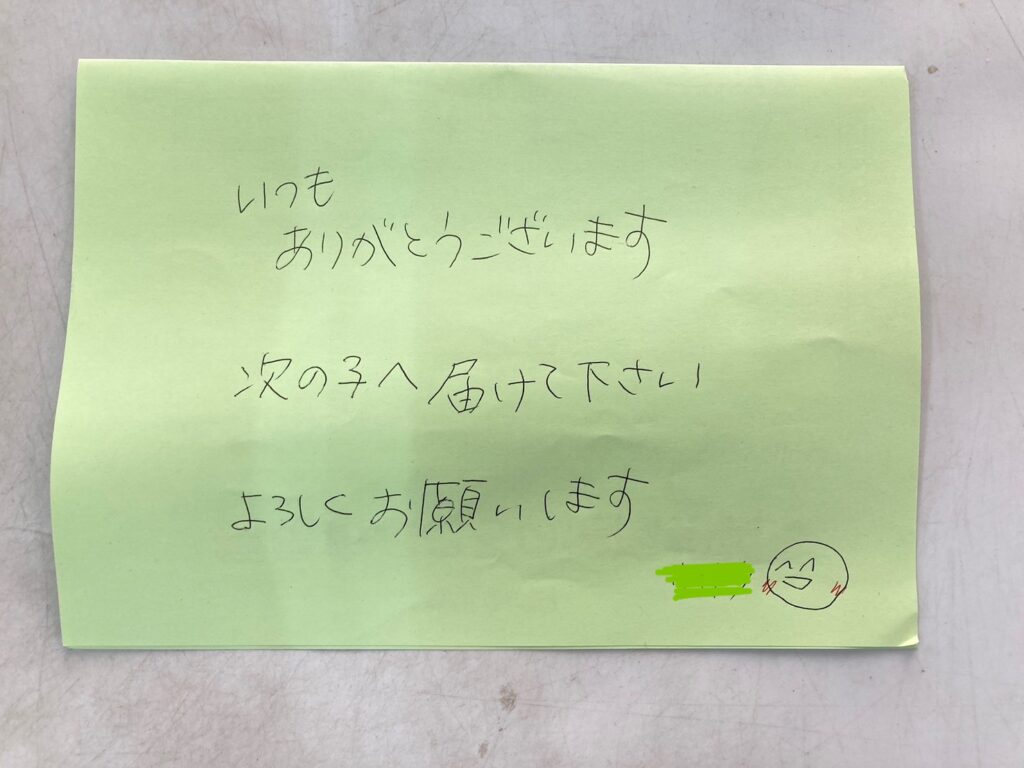 いつも
ありがとうございます
次の子へ届けて下さい
よろしくお願いします